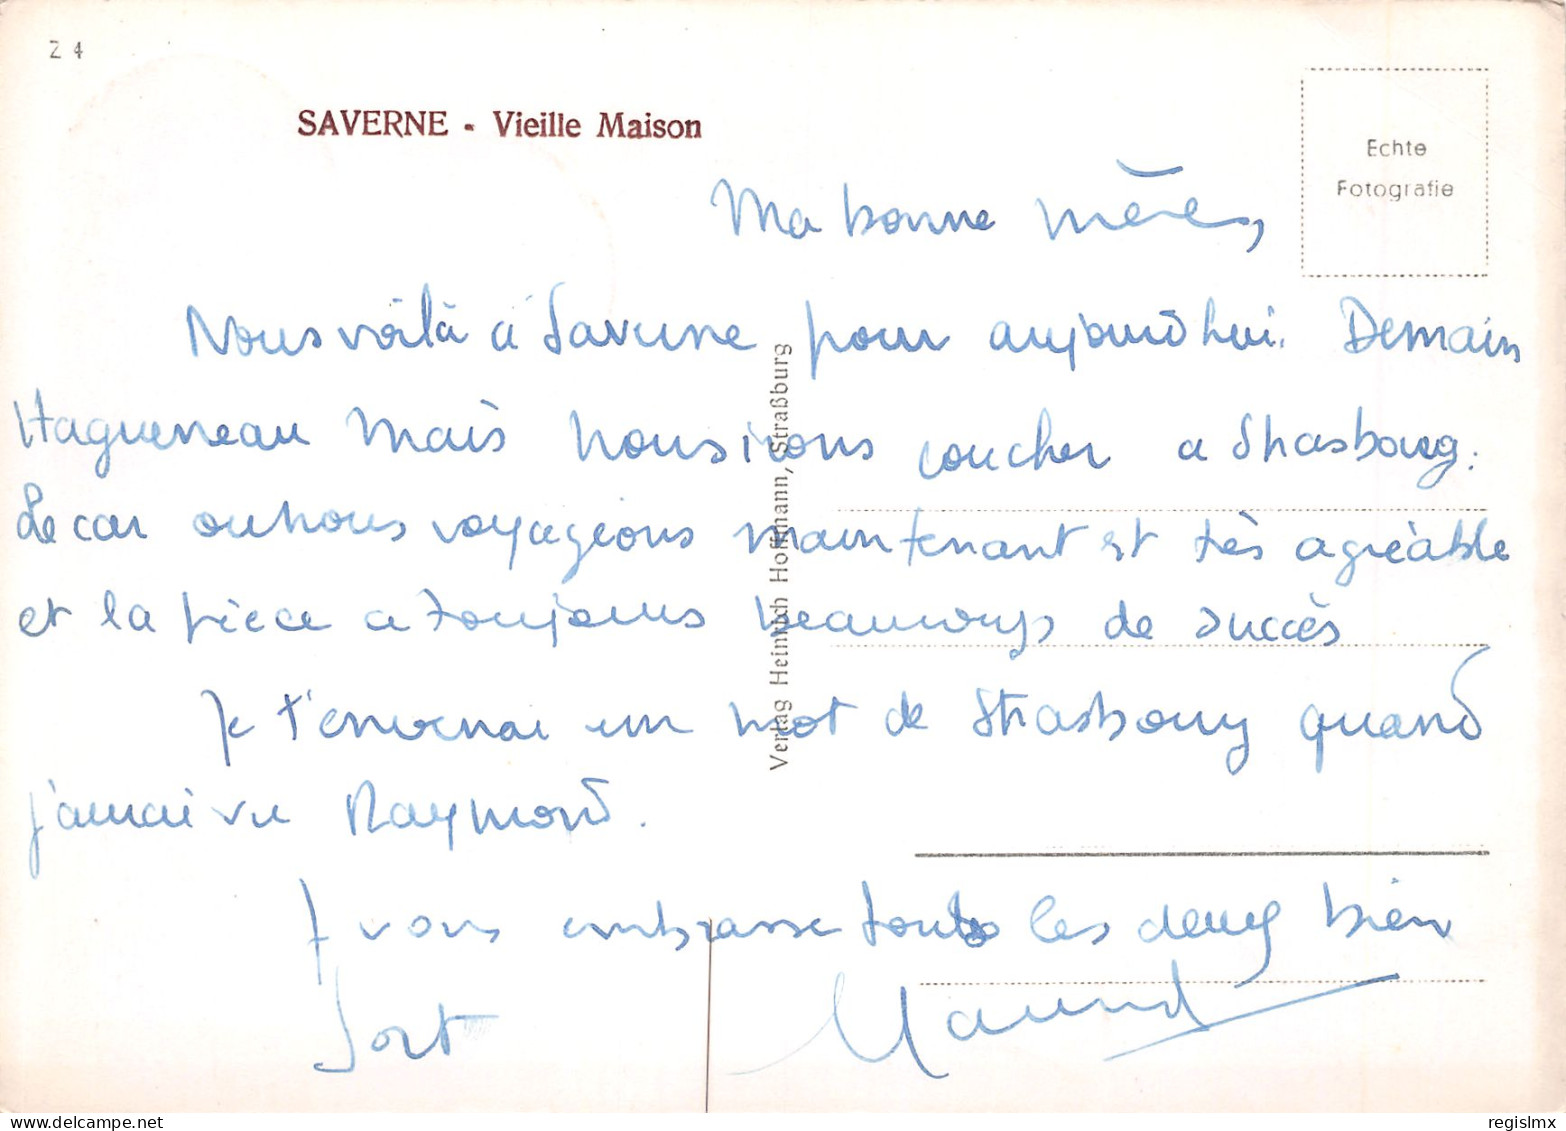 Z 4
SAVERNE - Vieille Maison
Echte
Fotografie
Ma bonne mère,
Nous voilà à Saverne pour aujourd hui. Demain
Hagueneau mais nous irons coucher a Strasbourg.
Le car ou nous voyageons maintenant est très agréable
et la pièce a toujours beaucoup de succès
Je t'enverrai un mot de Strasbourg quand
j'aurai vu Raymond.
J vous embrasse toutes les deux bien
fort
Verlag Heinrich Hoffmann, Straßburg
regislmx